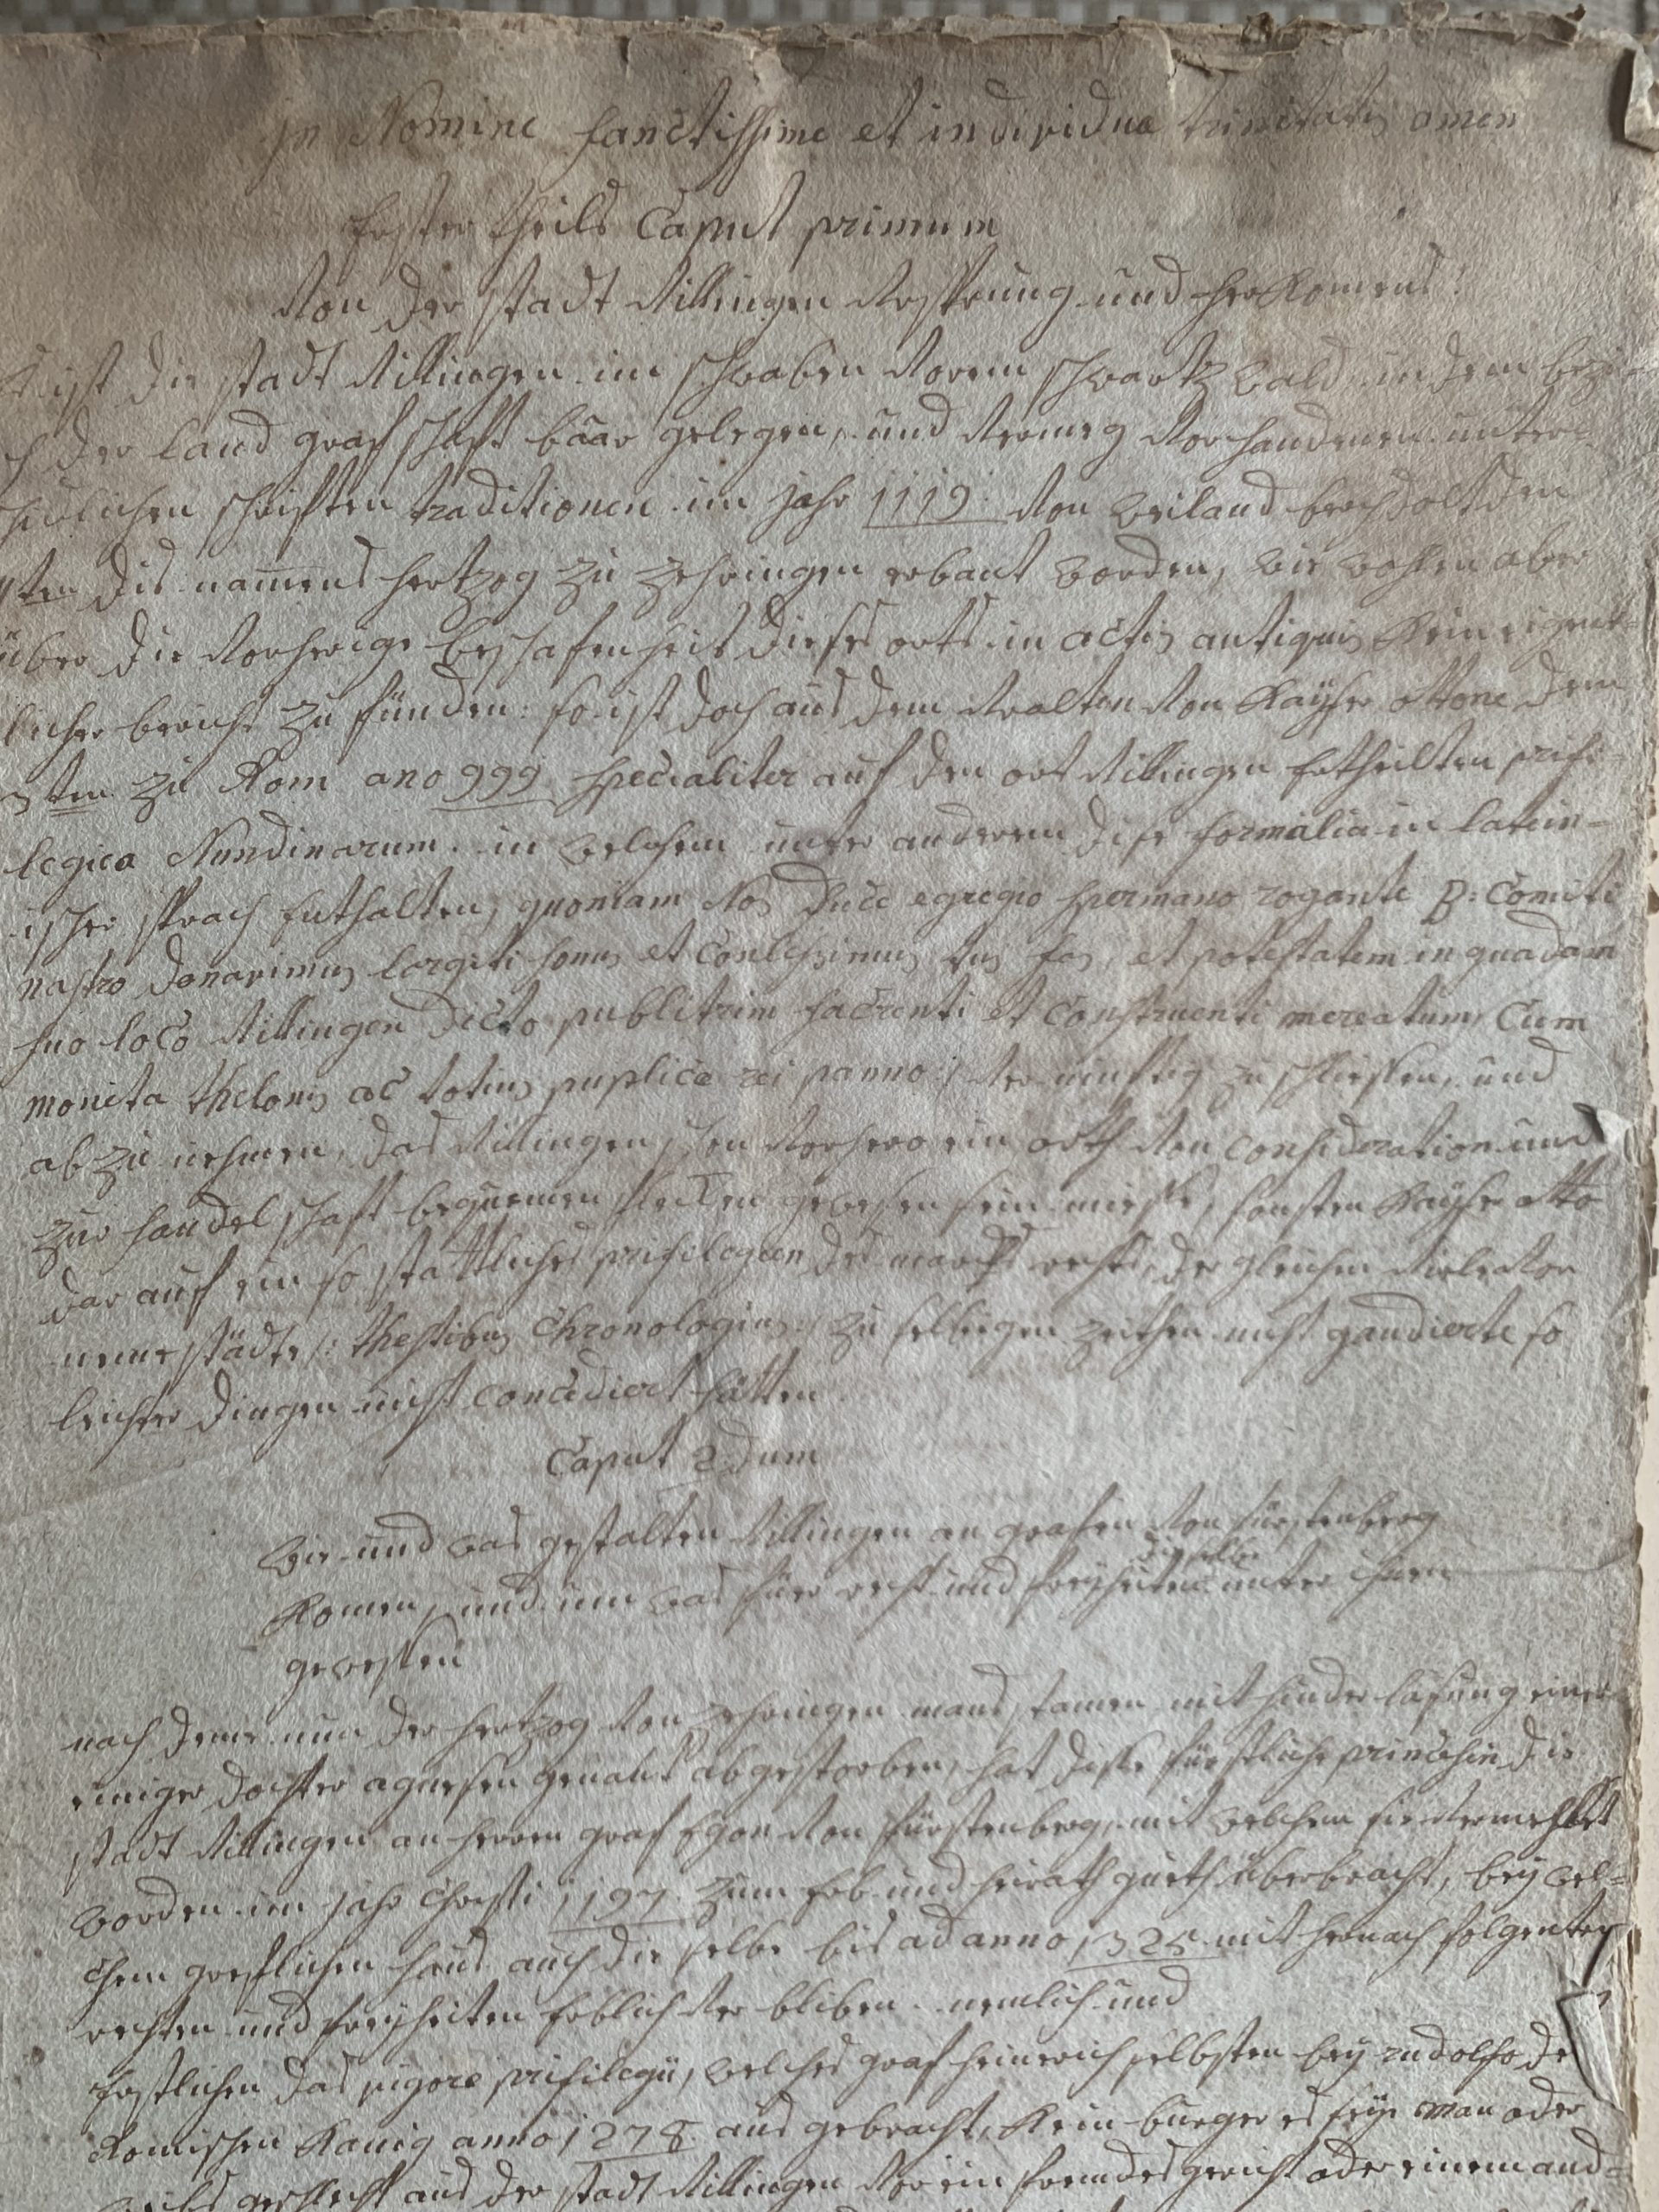 In Nomine sanctissime et individuae trinitatis amen
Erster theils Caput primum
Von der stadt Villingen Vrsprung und herkomens
ist die stadt Villingen im schwaben Vorem schwartz wald in dem bezi-
der land graf schafft baar gelegen, und Vermeg Vorhandenen unter-
schidlichen schrifften traditionen im jahr 1119 Von weiland berchtoltden
ten dis nammens hertzog zu zehringen erbaut worden, wie wohlen aber
über die Vorherige beschafenheit dieses orts in actis antiquis kein eigent-
licher bericht zu fünden: so ist doch aus dem Uralten Von kayser ottone dem
3ten zu Rom ano 999 specialiter auf den ort Villingen ertheilten prifi-
legiea Nundinarum in welchem unter anderem dise formalia in latein-
ischer sprach enthalten, quoniam Nos Duce egregio hermano rogante B: Comiti
nostro donavimus largiti sumus et Concessimus ius fas, et potestatem in quadam
suo loco Villingen dicto publicum facienti et Construenti mercatum, Cum
moneta thelonis ac totius puplice rei panno :/ Vernünftig zu schliessen, und
ab zu nehmen, das Villingen schon Vorhero ein orth Von consideration und
zur handelschaft bequemen flecken gewesen sein miesse, sonsten kayser otto
dar auf ein so stattliches prifilegien des marckts rechts, der gleichen Viele Vor
neme städte /: thestibus Chronologius :/ zu selbigen zeithen nicht gaudierte so
leichter dingen nicht concediert hätten
Caput 2dum
wie und was gestalten Villingen an grafen Von fürstenberg
komen, und um was für recht und freyheiten dieselbe unter ihnen
gewessen
nach deme nun der hertzog Von zehringen mans stamen mit hinderlasung einer
einiger dochter agnesen genant abgestorben, hat disse fürstliche princessin die
stadt Villingen an herren graf Egon Von fürstenberg, mit welchem sie Vermehlt
worden im jahr Christi 1197 zum erb und heirath gueth überbracht, bey wel-
chem greflichen haus auch die selbe bis ad anno 1325 mit hernach folgenten
rechten und freyheiten erblich Ver bliben nemlich und
Erstlichen das vigore prifilegii, welches graf heinrich selbsten bey rudolfo de
Romischen Kanig anno 1278 aus gebracht, kein burger es seye man oder
weibs geschlecht aus der stadt Villingen Vor ein fremdes gericht oder einem and-